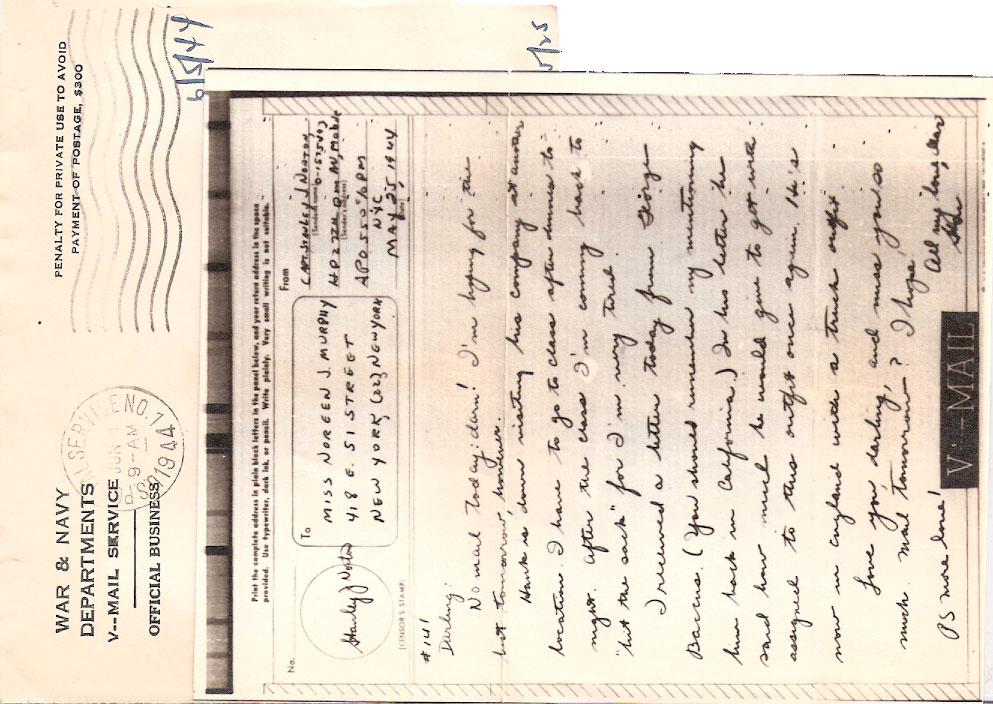 WAR & NAVY
DEPARTMENTS
V--MAIL SERVICE
OFFICIAL BUSINESS
PENALTY FOR PRIVATE USE TO AVOID
PAYMENT OF POSTAGE, $300
NO. 1
JUN
9-AM
1944
6/5/44
5/25
Print the complete address in plain block letters in the panel below, and your return address in the space
provided. Use typewriter, dark ink, or pencil. Write plainly. Very small writing is not suitable.
No.
Stanley J Norton
(CENSOR'S STAMP)
To
MISS NOREEN J. MURPHY
418 E. 51 STREET
NEW YORK, (22) NEW YORK
From
CAPT. STANLEY J NORTON,
(Sender's name)
HQ 22N QM BN, MOBILE
(Sender's address)
APO 550 % PM
NYC
MAY 25, 1944
(Date)
#141
Darling:
No mail today: darn! I'm hoping for the
best tomorrow, however.
Hank is down visiting his company at another
location. I have to go to class after dinner to
night. After the class I'm coming back to
"hit the sack" for I'm very tired.
I received a letter today from George
Barcus. (You should remember my mentioning
him back in California.) In his letter he
said how much he would give to get with
assigned to this outfit once again. He's
now in England with a truck outfit
Love you darling, and miss you so
much. Mail tomorrow? I hope!
All my love, dear
Stan
PS more love!
V--MAIL